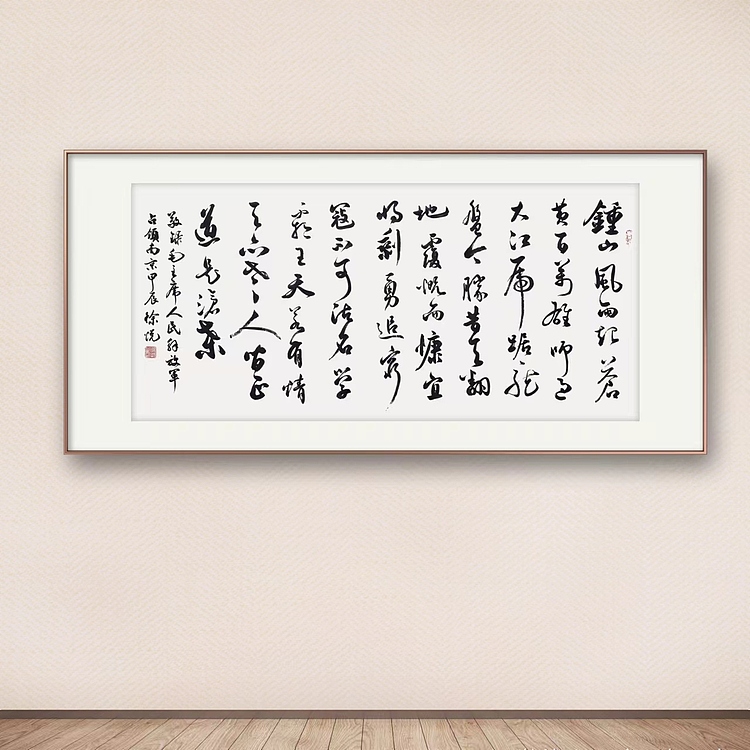 鍾山風雨起蒼
黄百萬雄师过
大江虎踞龙
盤今勝昔天翻
地覆慨而慷宜
将剩勇追窮
寇不可沽名学
霸王天若有情
天亦老人间正
道是滄桑
敬録毛主席人民解放軍
占領南京甲辰徐悦